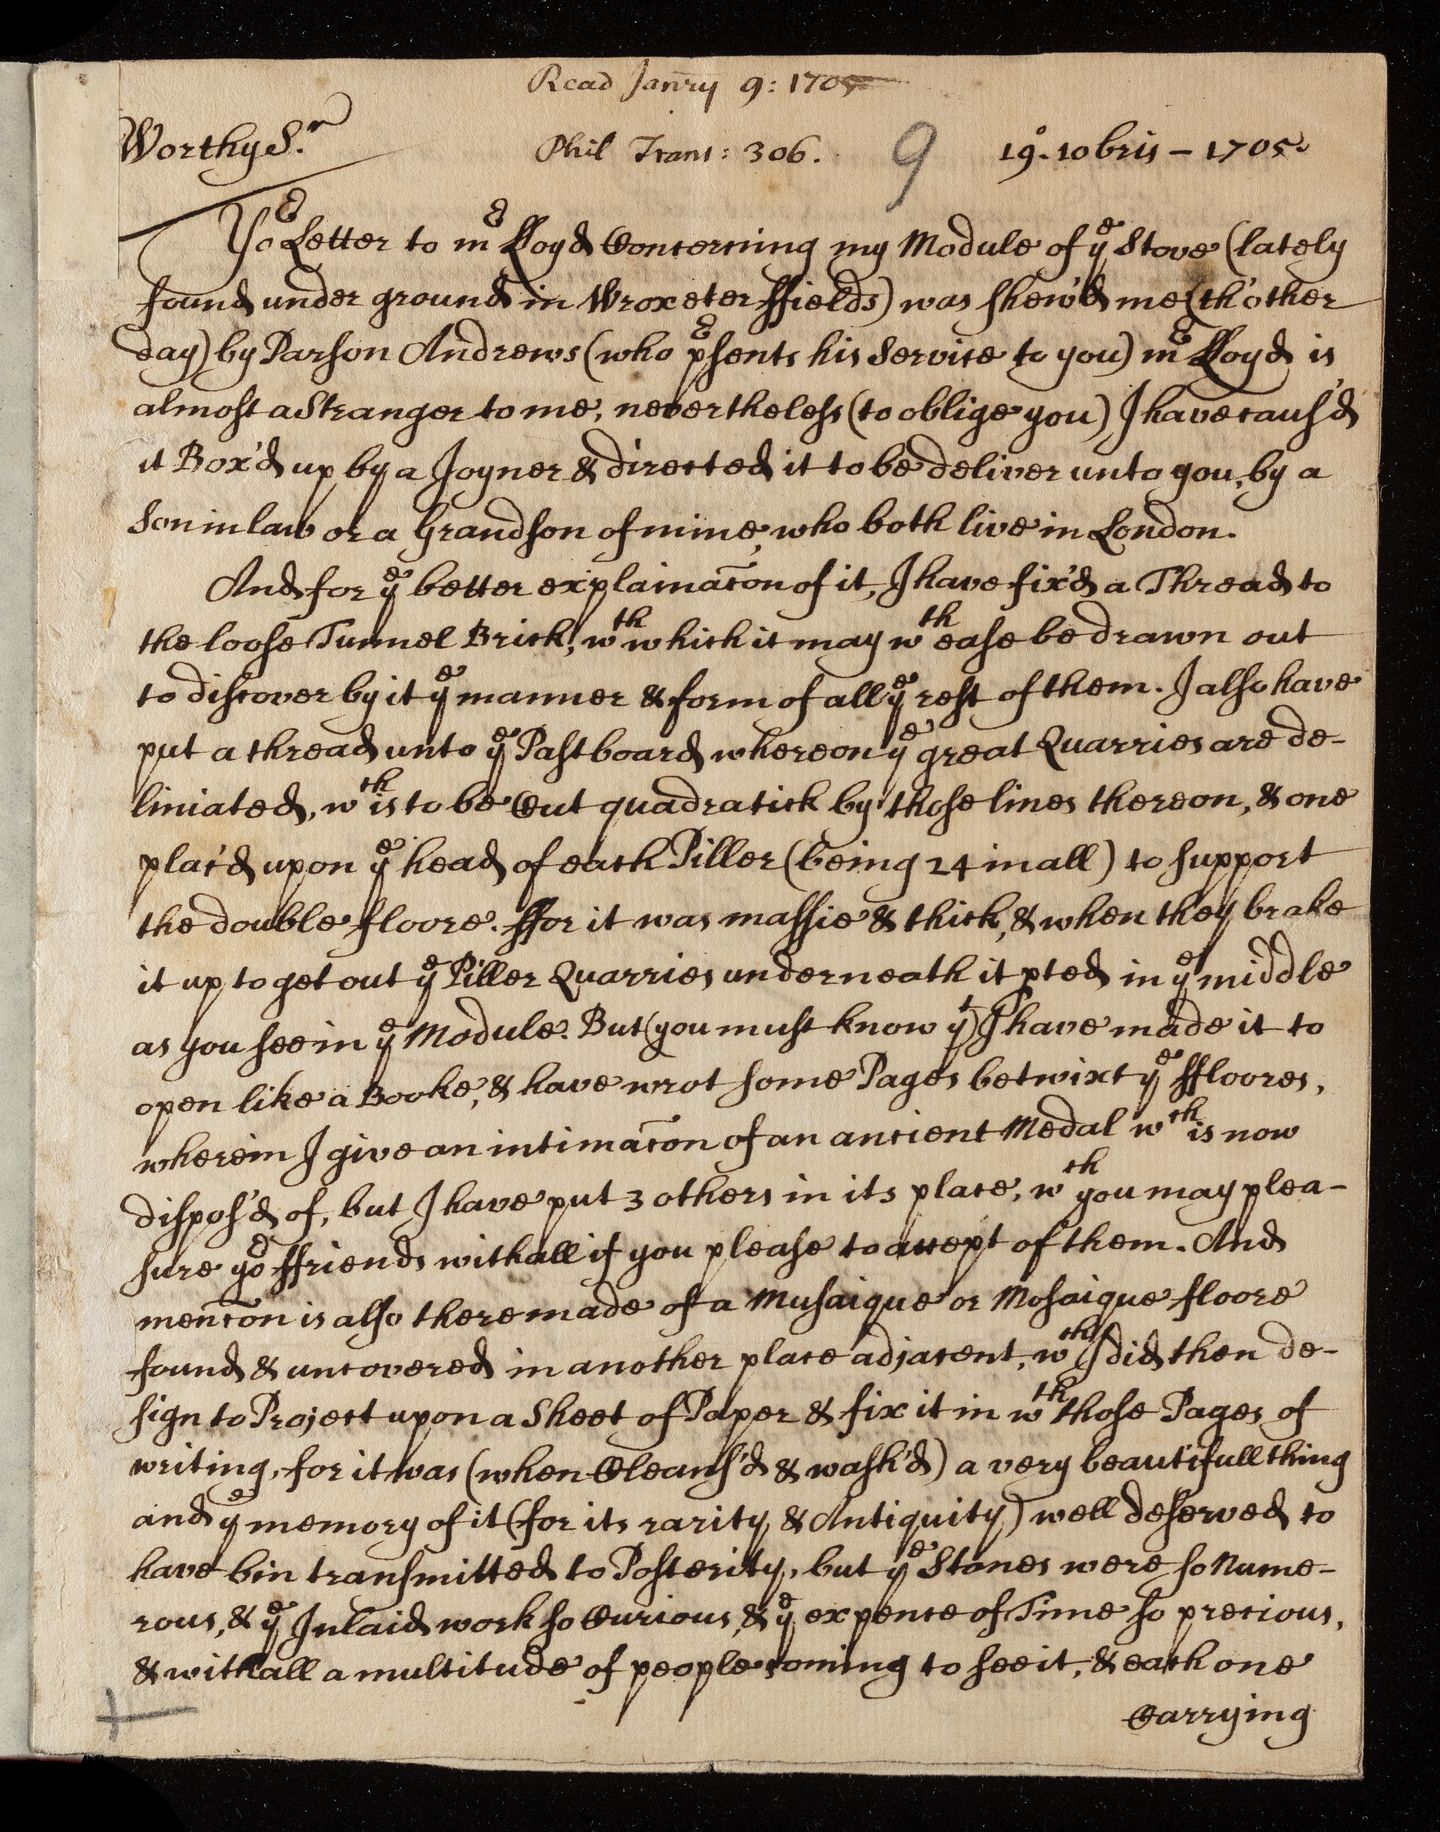 Read Janry 9: 1705
Worthy Sr
Phil Trans: 306.
9
19o. 10bris – 1705.
Yor Letter to mr Lloyd Concerning my Module of ye Stove (lately
found under ground in Wroxeter ffields) was shew'd me (th'other
day) by Parson Andrews (who p'sents his Service to you) mr Lloyd is
almost a Stranger to me, nevertheless (to oblige you) I have caus'd
it Box'd up by a Joyner & directed it to be deliver unto you, by a
Son in law or a Grandson of mine, who both live in London.
And for ye better explainac͠on of it, I have fix'd a Thread to
the loose Tunnel Brick, wth which it may wth ease be drawn out
to discover by it ye manner & form of all ye rest of them. I also have
put a thread unto ye Pastboard whereon ye great Quarries are de-
liniated, wch is to be Cut quadratick by those lines thereon, & one
plac'd upon ye head of each Piller (being 24 in all) to support
the double floore. ffor it was massie & thick, & when they brake
it up to get out ye Piller Quarries underneath it pted in ye middle
as you see in ye Module. But (you must know yt) I have made it to
open like a Booke, & have wrot some Pages betwixt ye ffloores,
wherein I give an intimac͠on of an ancient Medal wch is now
dispos'd of, but I have put 3 others in its place, wch you may plea-
sure yor ffriends withall if you please to accept of them. And
menc͠on is also there made of a Musaique or Mosaique floore
found & uncovered in another place adjacent, wch I did then de-
sign to Project upon a Sheet of Paper & fix it in wth those Pages of
writing, for it was (when Cleans'd & wash'd) a very beautifull thing
and ye memory of it (for its rarity & Antiquity) well deserved to
have bin transmitted to Posterity, but ye Stones were so Nume-
rous, & ye Inlaid work so Curious, & ye expence of Time so precious,
& withall a multitude of people coming to see it, & each one
Carrying